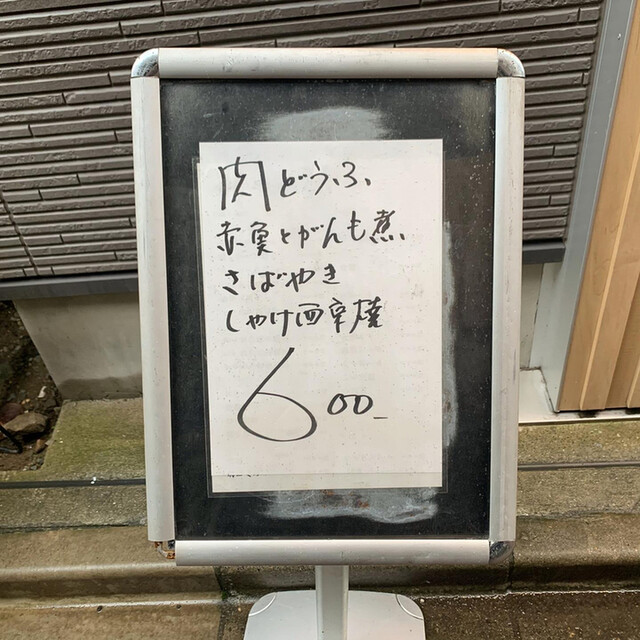 肉どうふ
赤魚とがんも煮
さばやき
しゃけ西京焼
600-